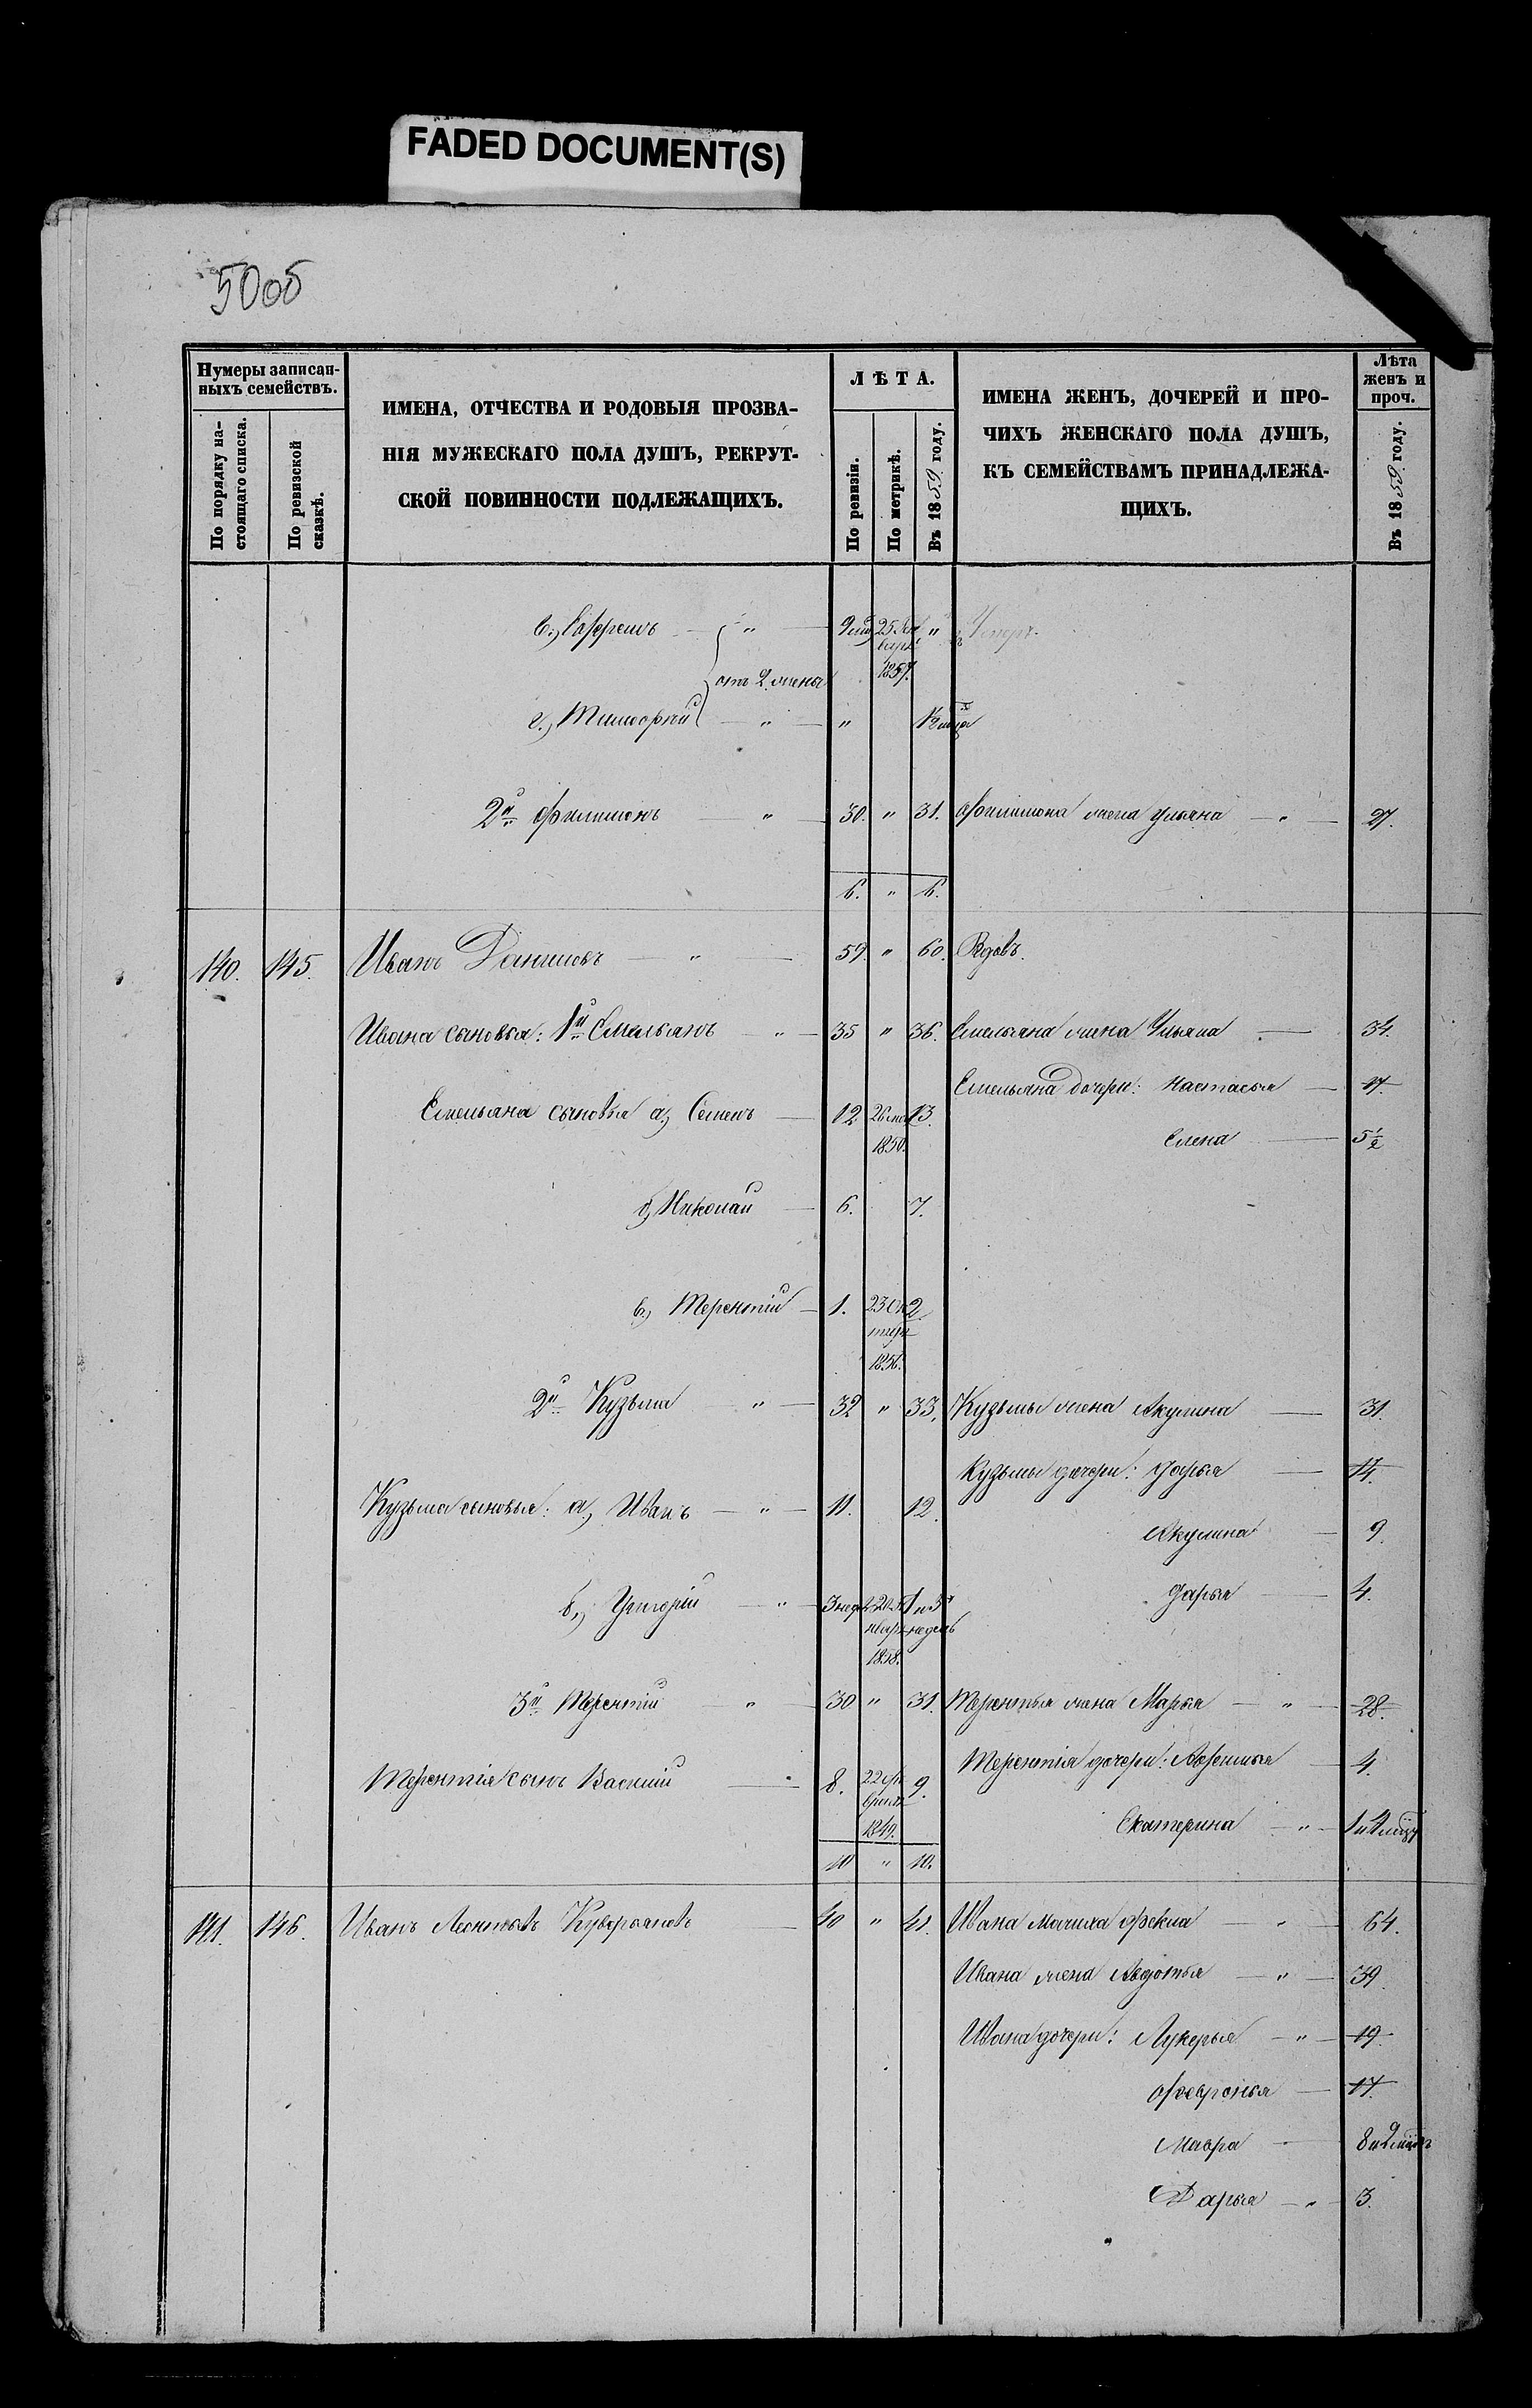 FADED DOCUMENT(S)
50об
Нумеры записан-
ныхъ семействъ.
По порядку на-
стоящаго списка.
По ревизской
сказкѣ.
ИМЕНА, ОТЧЕСТВА И РОДОВЫЯ ПРОЗВА-
НІЯ МУЖЕСКАГО ПОЛА ДУШЪ, РЕКРУТ-
СКОЙ ПОВИННОСТИ ПОДЛЕЖАЩИХЪ.
ЛѢТА.
По ревизіи.
По метрикѣ.
Въ 1859 году.
ИМЕНА ЖЕНЪ, ДОЧЕРЕЙ И ПРО-
ЧИХЪ ЖЕНСКАГО ПОЛА ДУШЪ,
КЪ СЕМЕЙСТВАМЪ ПРИНАДЛЕЖА-
ЩИХЪ.
Лѣта
женъ и
проч.
Въ 1859 году.
в.) Ефремъ " 25 "
отъ 2 жены 1857.
г.) Тимофѣй " "
2й Филимонъ " 30. " 31. Филимона жена Ульяна " 27.
6. " 6.
140. 145. Иванъ Даниловъ " 59. " 60. Вдовъ.
Ивана сыновья: 1й Емельянъ " 35 " 36. Емельяна жена Ульяна 34.
Емельяна дочери: Настасья 17.
Емельяна сыновья а.) Семенъ 12 26 13.
1850. Елена 5½
б) Николай 6. 7.
в.) Терентій 1. 23 Ок 2.
тября
1856.
2й Кузьма " 32 " 33. Кузьмы жена Акулина 31.
Кузьмы дочери: Дарья 14.
Кузьма сыновья: а.) Иванъ " 11. 12.
Акулина 9.
б.) Григорій " 3 нед. 20 Я 1 и 3 Дарья 4.
нваря недель
1858.
3й Терентій " 30 " 31. Терентья жена Марья " 28.
Терентія дочери: Афимья 4.
Терентія сынъ Василій 8. 22 9.
1849. Екатерина " 1 и 4 мѣц
10 " 10.
141. 146. Иванъ Леонтьевъ 40 " 41. Ивана Мачиха Фекла " 64.
Ивана жена Авдотья " 39.
Ивана дочери: Лукерья " 19.
Февронья 17.
Мавра
Дарья " 3.